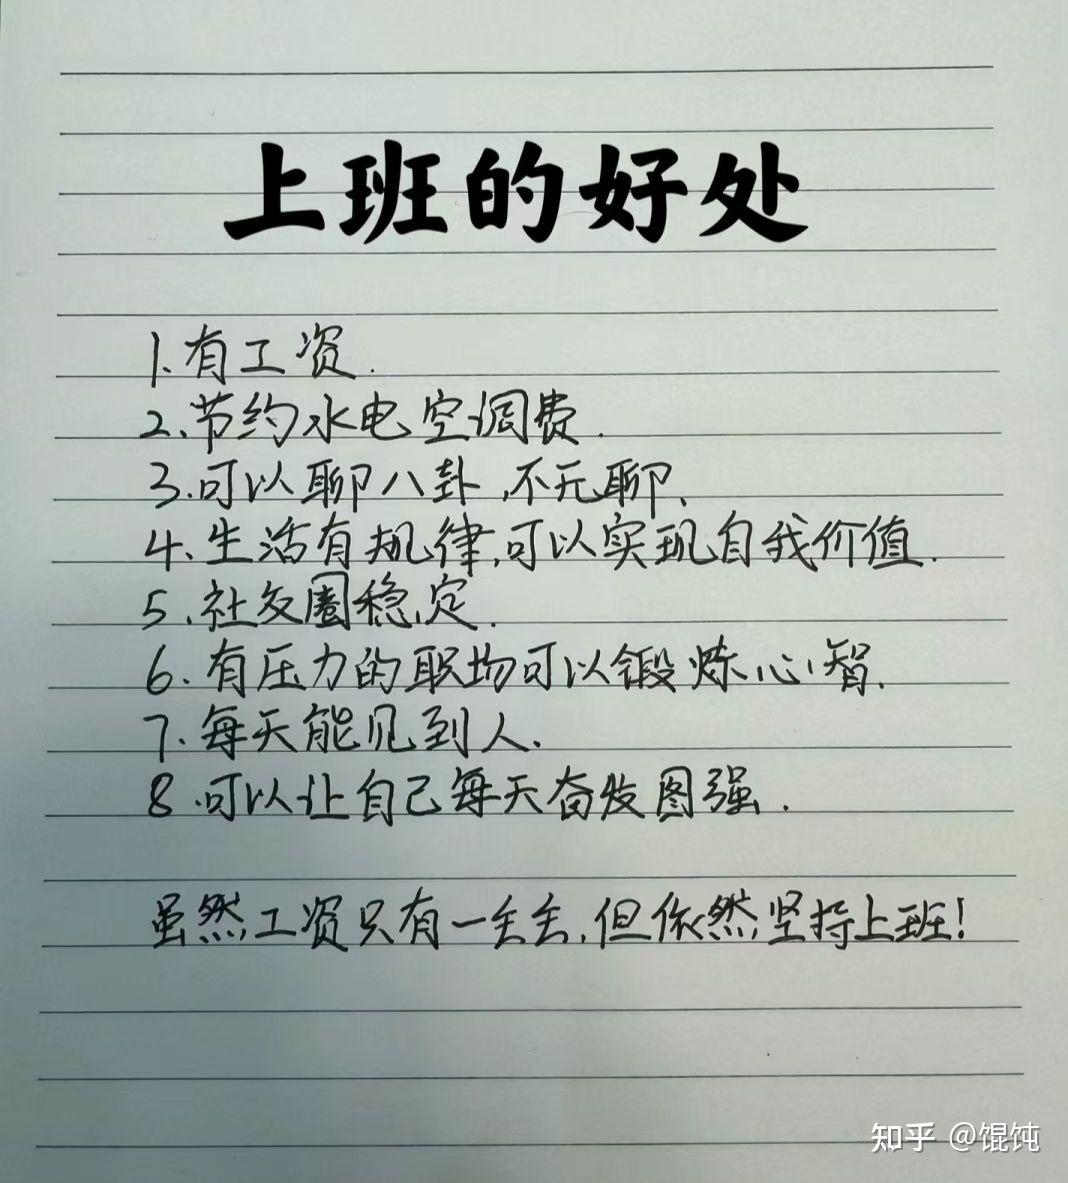 上班的好处
1.有工资.
2、节约水电空调费.
3.可以聊八卦,不无聊、
4、生活有规律,可以实现自我价值.
5、社交圈稳定.
6.有压力的职场可以锻炼心智.
7.每天能见到人.
8.可以让自己每天奋发图强.
虽然工资只有一丢丢,但依然坚持上班!
知乎 @馄饨